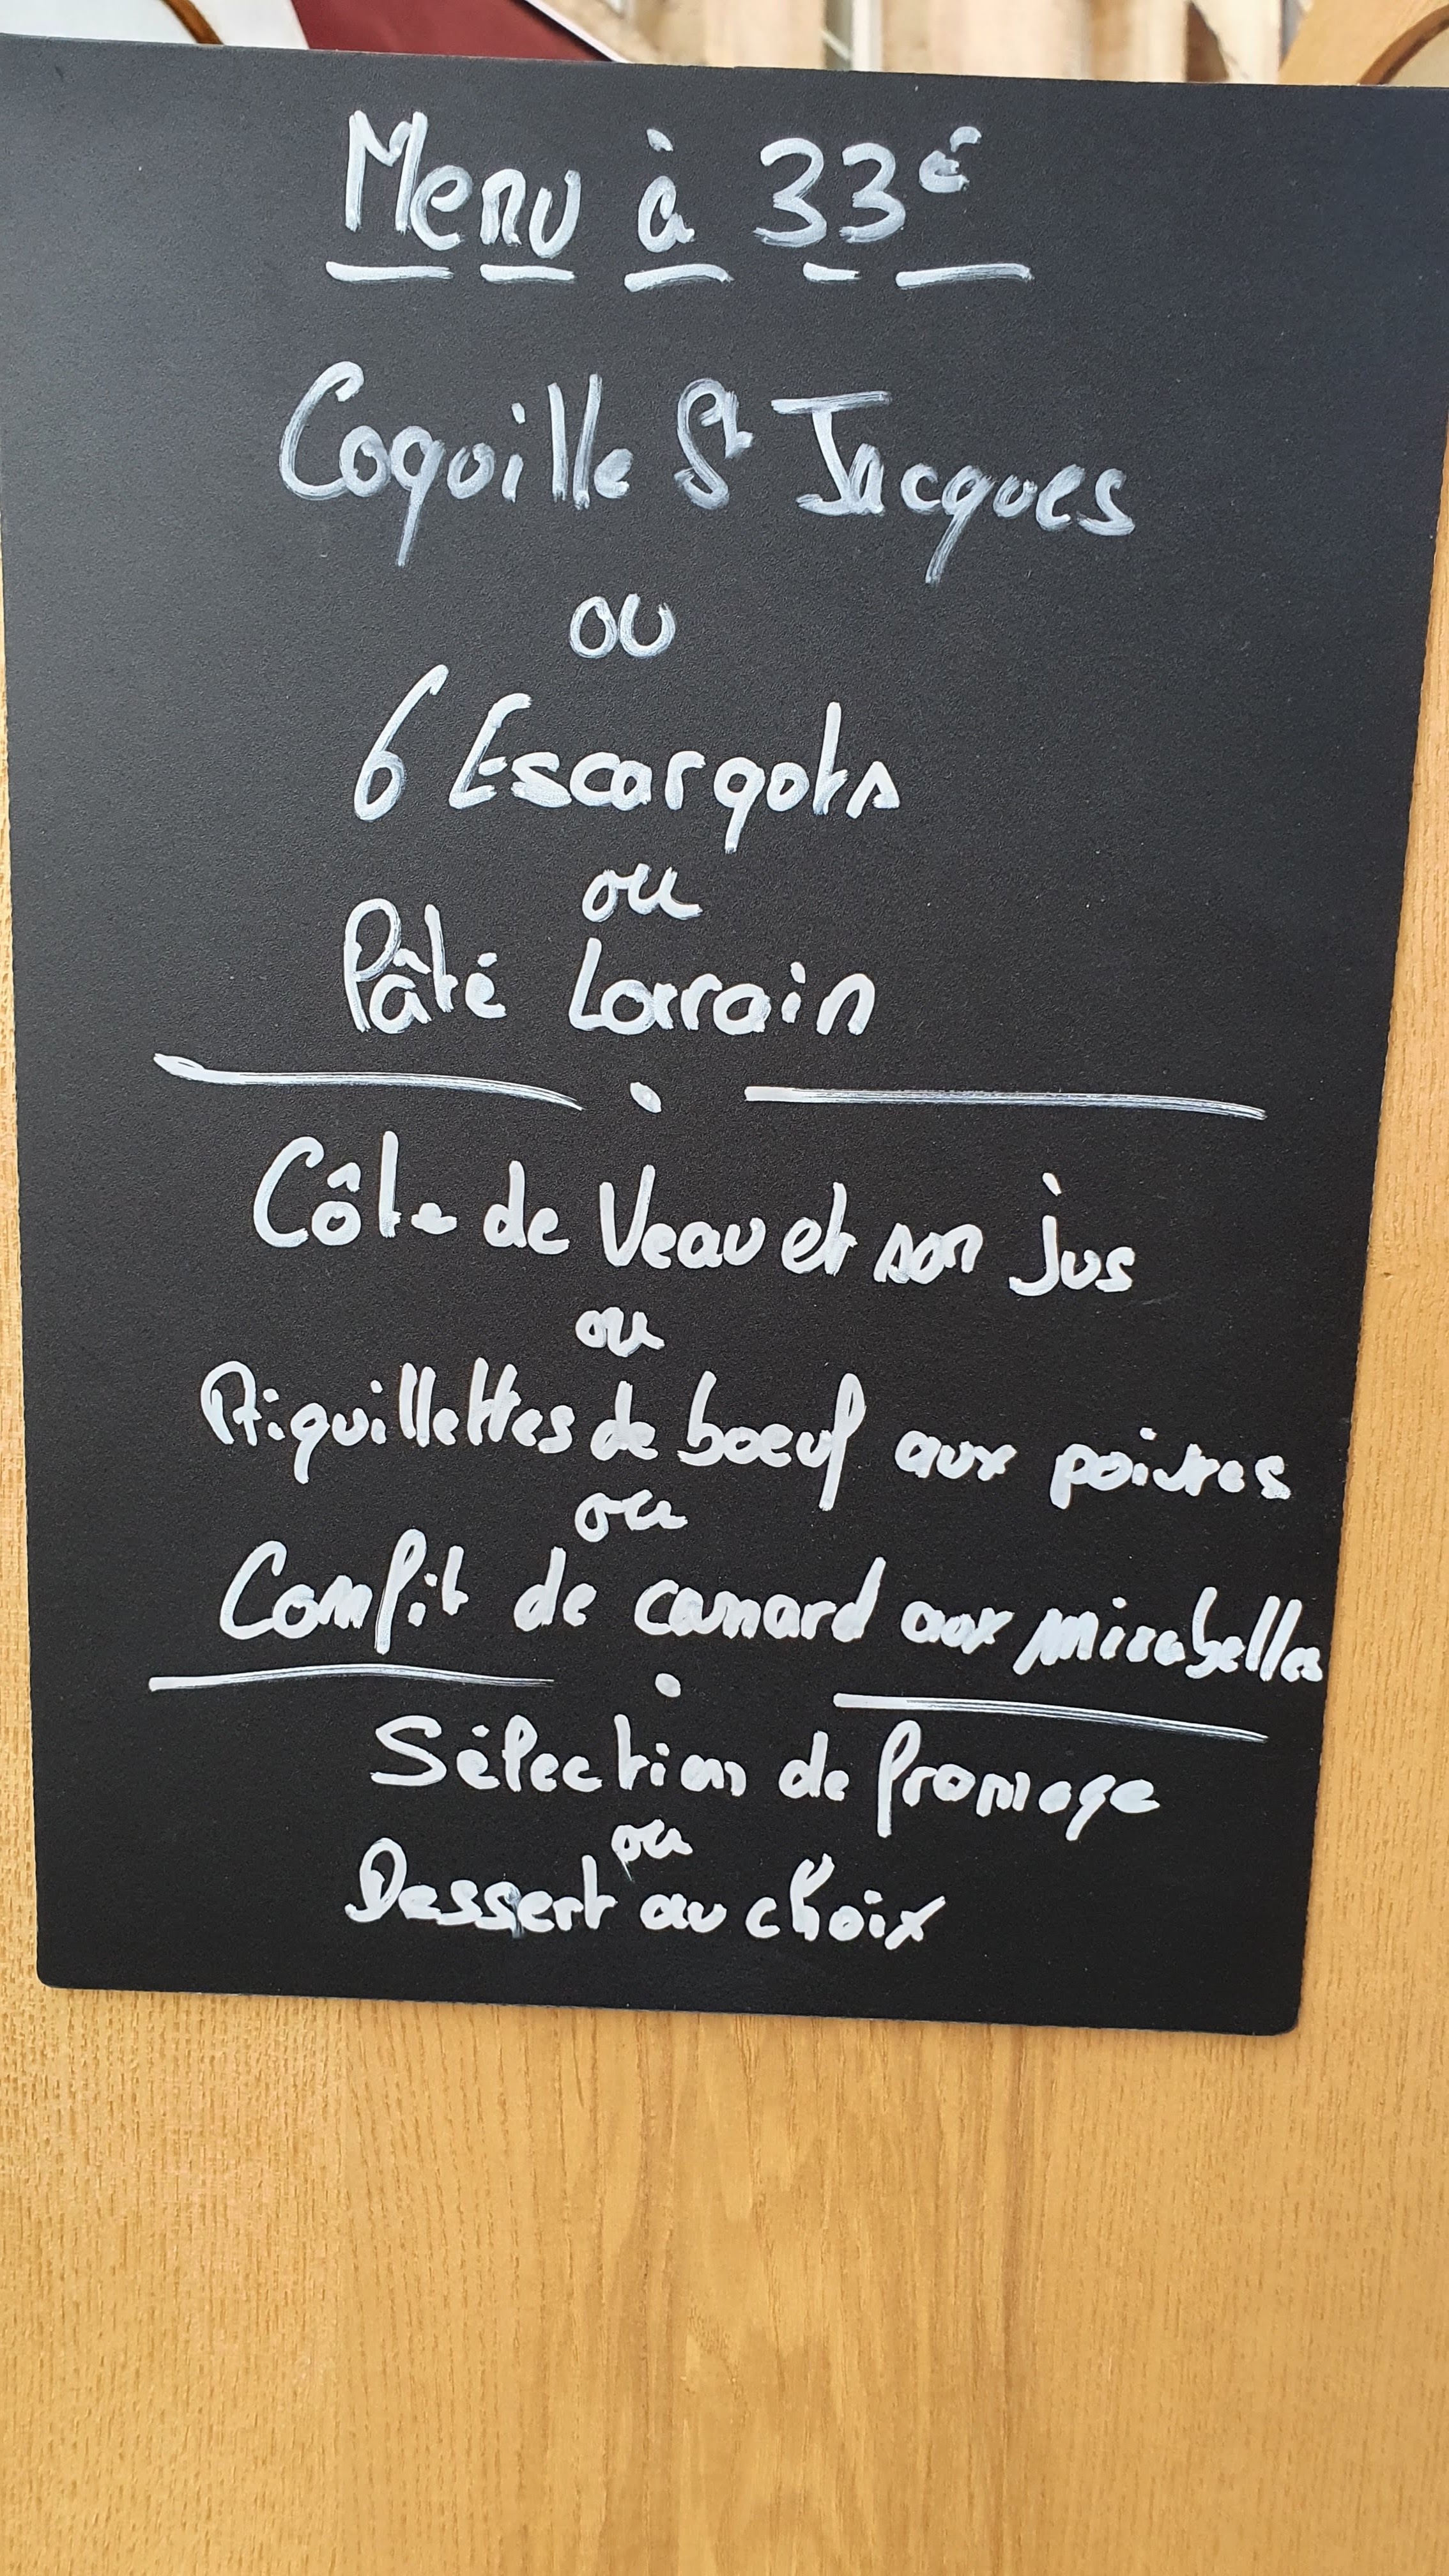 Menu à 33€
Coquille St Jacques
ou
6 Escargots
ou
Pâté Lorrain
Côte de Veau et son jus
ou
Aiguillettes de boeuf aux poivres
ou
Confit de canard aux mirabelles
Sélection de fromage
ou
Dessert au choix